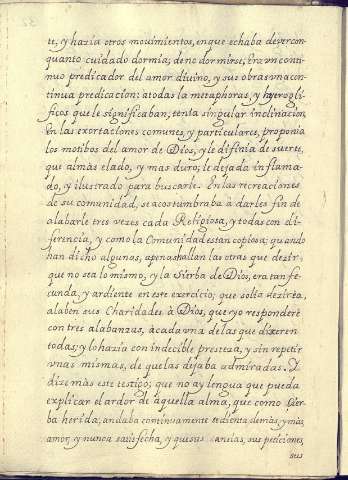 te, y hazia otros mouimientos, en que echaba de ver con
quanto cuidado dormia; de no dormirse, Era vn conti-
nuo predicador del amor diuino, y sus obras vna con-
tinua predicacion: a todas la metaphoras, y hyerogli-
ficos que le significaban, tenia singular inclinacion,
en las exortaciones comunes, y particulares, proponia
los motibos del amor de Dios, y le difinia de suerte,
que al mas elado, y mas duro, le dejada inflama-
do, y ilustrado para buscarle. En las recreaciones
de su comunidad, se acostumbraba à darles fin de
alabarle tres vezes cada Religiosa, y todas con di-
ferencia, y como la Comunidad es tan copiosa; quando
han dicho algunas, apenas hallan las otras que dezir,
que no sea lo mismo, y la Sierba de Dios, era tan fe-
cunda, y ardiente en este exercicio; que solia dezirles,
alaben sus Charidades à Dios, que yo responderè
con tres alabanzas, à cada vna de las que dixeren
todas; y lo hazia con indecible presteza, y sin repetir
vnas mismas, de que las dejaba admiradas. Y
dize mas este testigo; que no ay lengua que pueda
explicar el ardor de aquella alma, que como Cier-
ba herida, andaba continuamente sedienta de mas, y mas
amor, y nunca satisfecha, y que sus ansias, sus peticiones,
sus